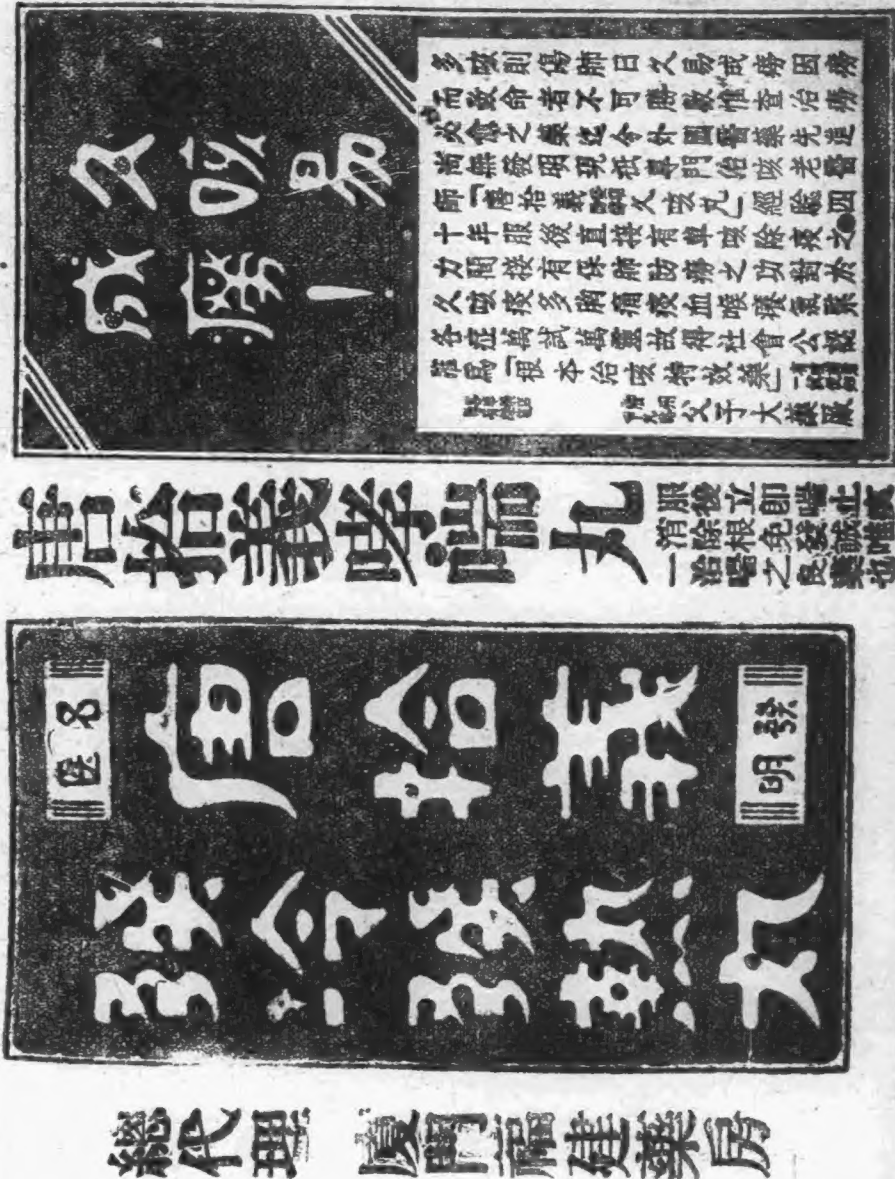 久咳易
成癆！
多咳則傷肺日久易成癆因癆
而致命者不可勝數惟查治癆
必愈之藥迄今外國醫藥先進
尚無發明現祇專門治咳老醫
師「唐拾義久咳丸」經驗四
十年服後直接有單咳除痰之
力間接有保肺防癆之功對於
久咳痰多胸痛痰血喉癢氣緊
各症萬試萬靈故得社會公認
稱為「根本治咳特效藥」
父子大藥廠
唐拾義哮喘丸
服後立即喘止氣
消除根免發誠唯
一治喘之良藥也
名醫 唐拾義 發明
發冷發熱丸
總代理 廈門福建藥房